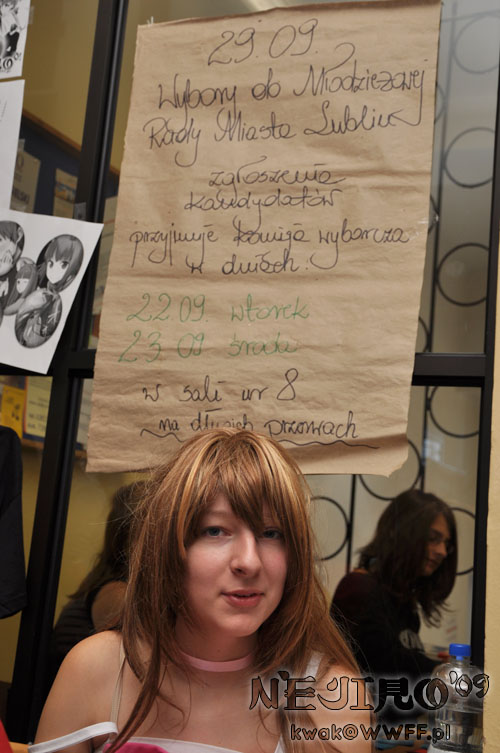 29.09.
Wybory do Młodzieżowej
Rady Miasta Lublin
zgłoszenia
kandydatów
przyjmuje komisja wyborcza
w dniach.
22.09. wtorek
23.09 środa
w sali nr 8
na długich przerwach
NEJIRO'09
kwak@WWFF.pl